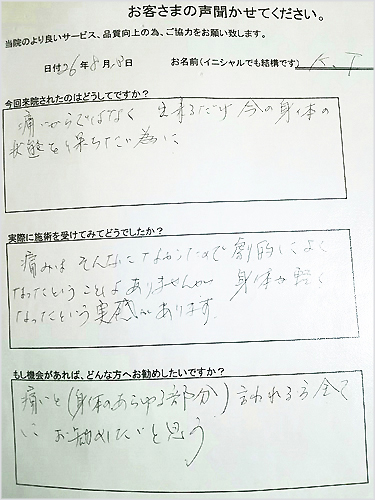 お客さまの声聞かせてください。
当院のより良いサービス、品質向上の為、ご協力をお願い致します。
日付 26年 8月 3日 お名前(イニシャルでも結構です) K.T
今回来院されたのはどうしてですか?
痛いからではなく 出来るだけ今の身体の
状態を保ちたい為に
実際に施術を受けてみてどうでしたか?
痛みは そんなになかったので 劇的によく
なったということはありませんが 身体が軽く
なったという実感があります。
もし機会があれば、どんな方へお勧めしたいですか?
痛いと(身体のあらゆる部分)言われる方全て
に お勧めしたいと思う